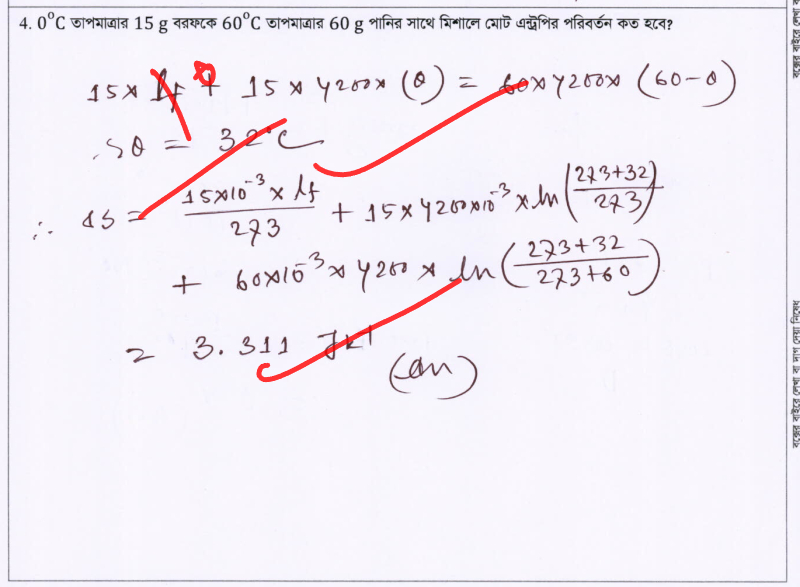 4. 0°C তাপমাত্রার 15 g বরফকে 60°C তাপমাত্রার 60 g পানির সাথে মিশালে মোট এন্ট্রপির পরিবর্তন কত হবে?
15 × lf + 15 × 4200 × (θ) = 60 × 4200 × (60 - θ)
∴ θ = 32°C
∴ ΔS = \frac{15×10^{-3} × lf}{273} + 15 × 4200×10^{-3} × ln(\frac{273+32}{273})
+ 60×10^{-3} × 4200 × ln(\frac{273+32}{273+60})
= 3.311 JK^{-1}
(An)
বক্সের বাইরে লেখা বা দাগ দেয়া নিষেধ